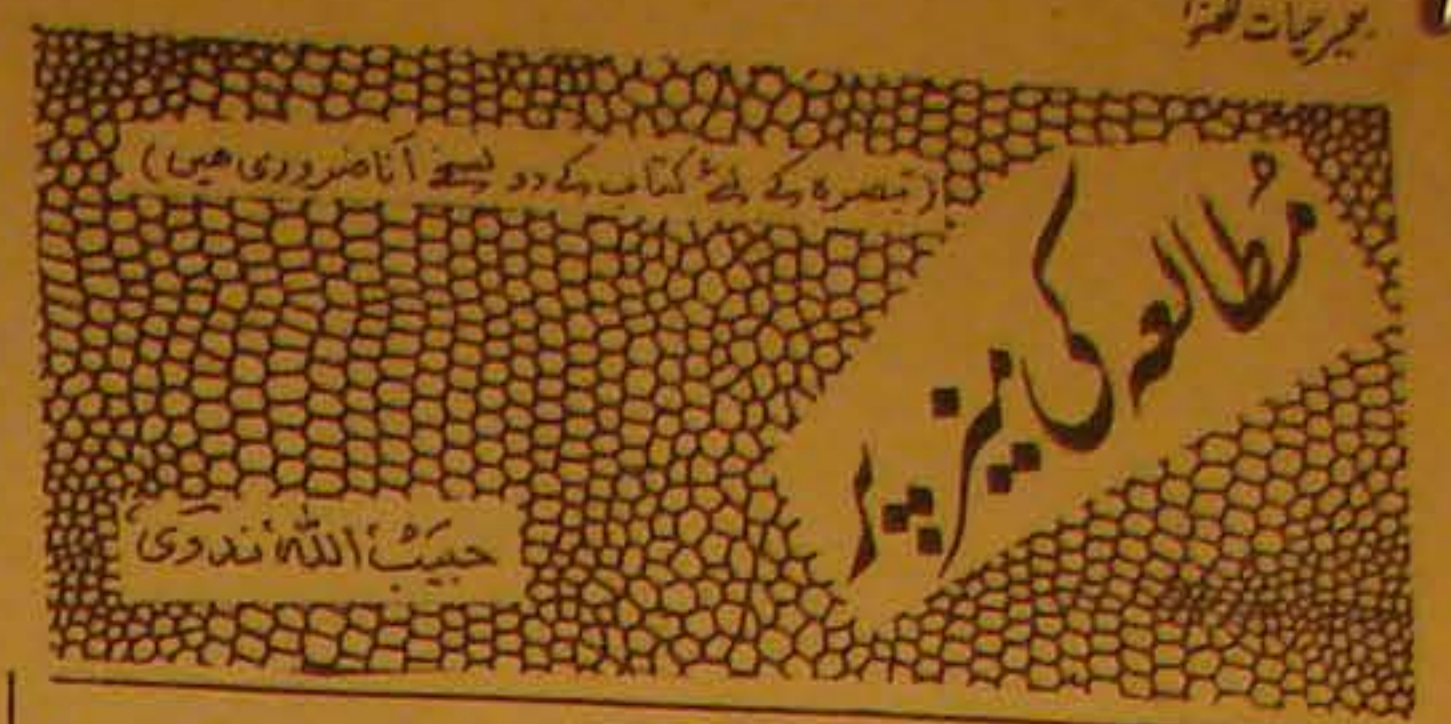 تعمیر حیات لکھنؤ
(تبصرہ کے لئے کتاب کے دو نسخے آنا ضروری ھیں)
مُطالعہ کی میز پر
حبیبُ اللّٰہ ندوی